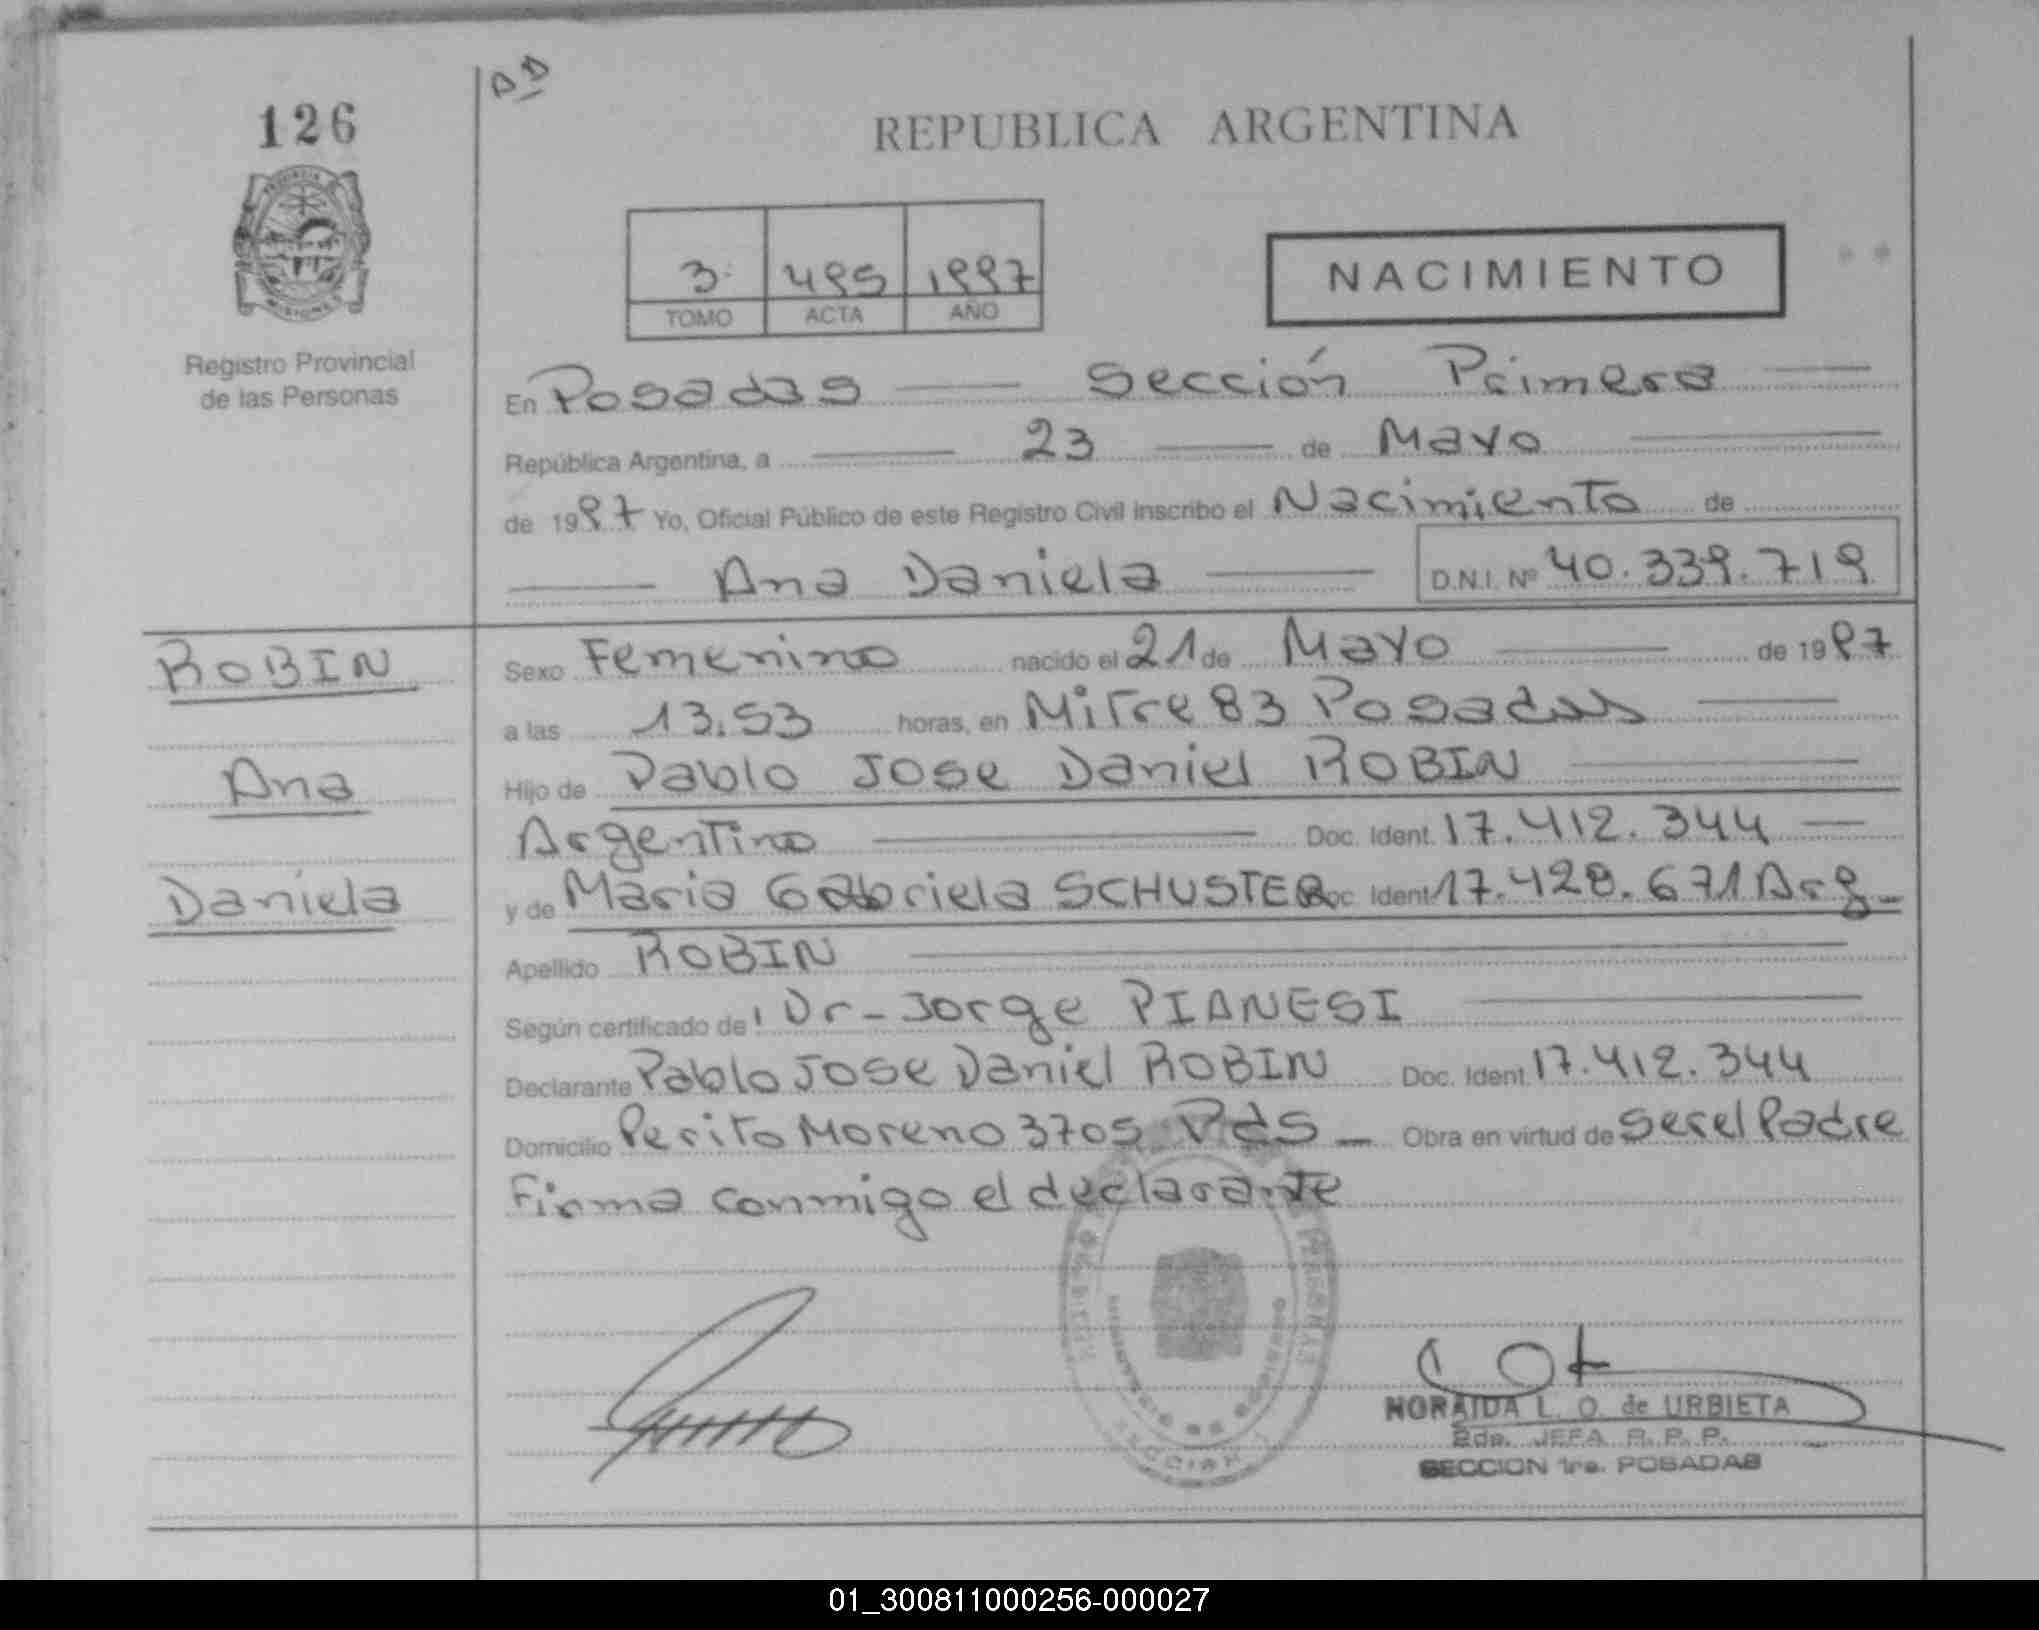 126
REPUBLICA ARGENTINA
3 495 1997
TOMO ACTA AÑO
NACIMIENTO
Registro Provincial
de las Personas
En Posadas Sección Primera
República Argentina, a 23 de Mayo
de 1997 Yo, Oficial Público de este Registro Civil inscribo el Nacimiento de
Ana Daniela D.N.I. Nº 40.339.719
ROBIN
Ana
Daniela
Sexo Femenino nacido el 21 de Mayo de 1997
a las 13.53 horas, en Mitre 83 Posadas
Hijo de Pablo Jose Daniel ROBIN
Argentino Doc. Ident. 17.412.344
y de Maria Gabriela SCHUSTER Doc. Ident. 17.428.671 Arg
Apellido ROBIN
Según certificado de Dr-Jorge PIANESI
Declarante Pablo Jose Daniel ROBIN Doc. Ident. 17.412.344
Domicilio Perito Moreno 3705 Pds Obra en virtud de ser el Padre
Firma conmigo el declarante
NORAIDA L. O. de URBIETA
2da. JEFA R. P. P.
SECCION 1ra. POSADAS
01_300811000256-000027